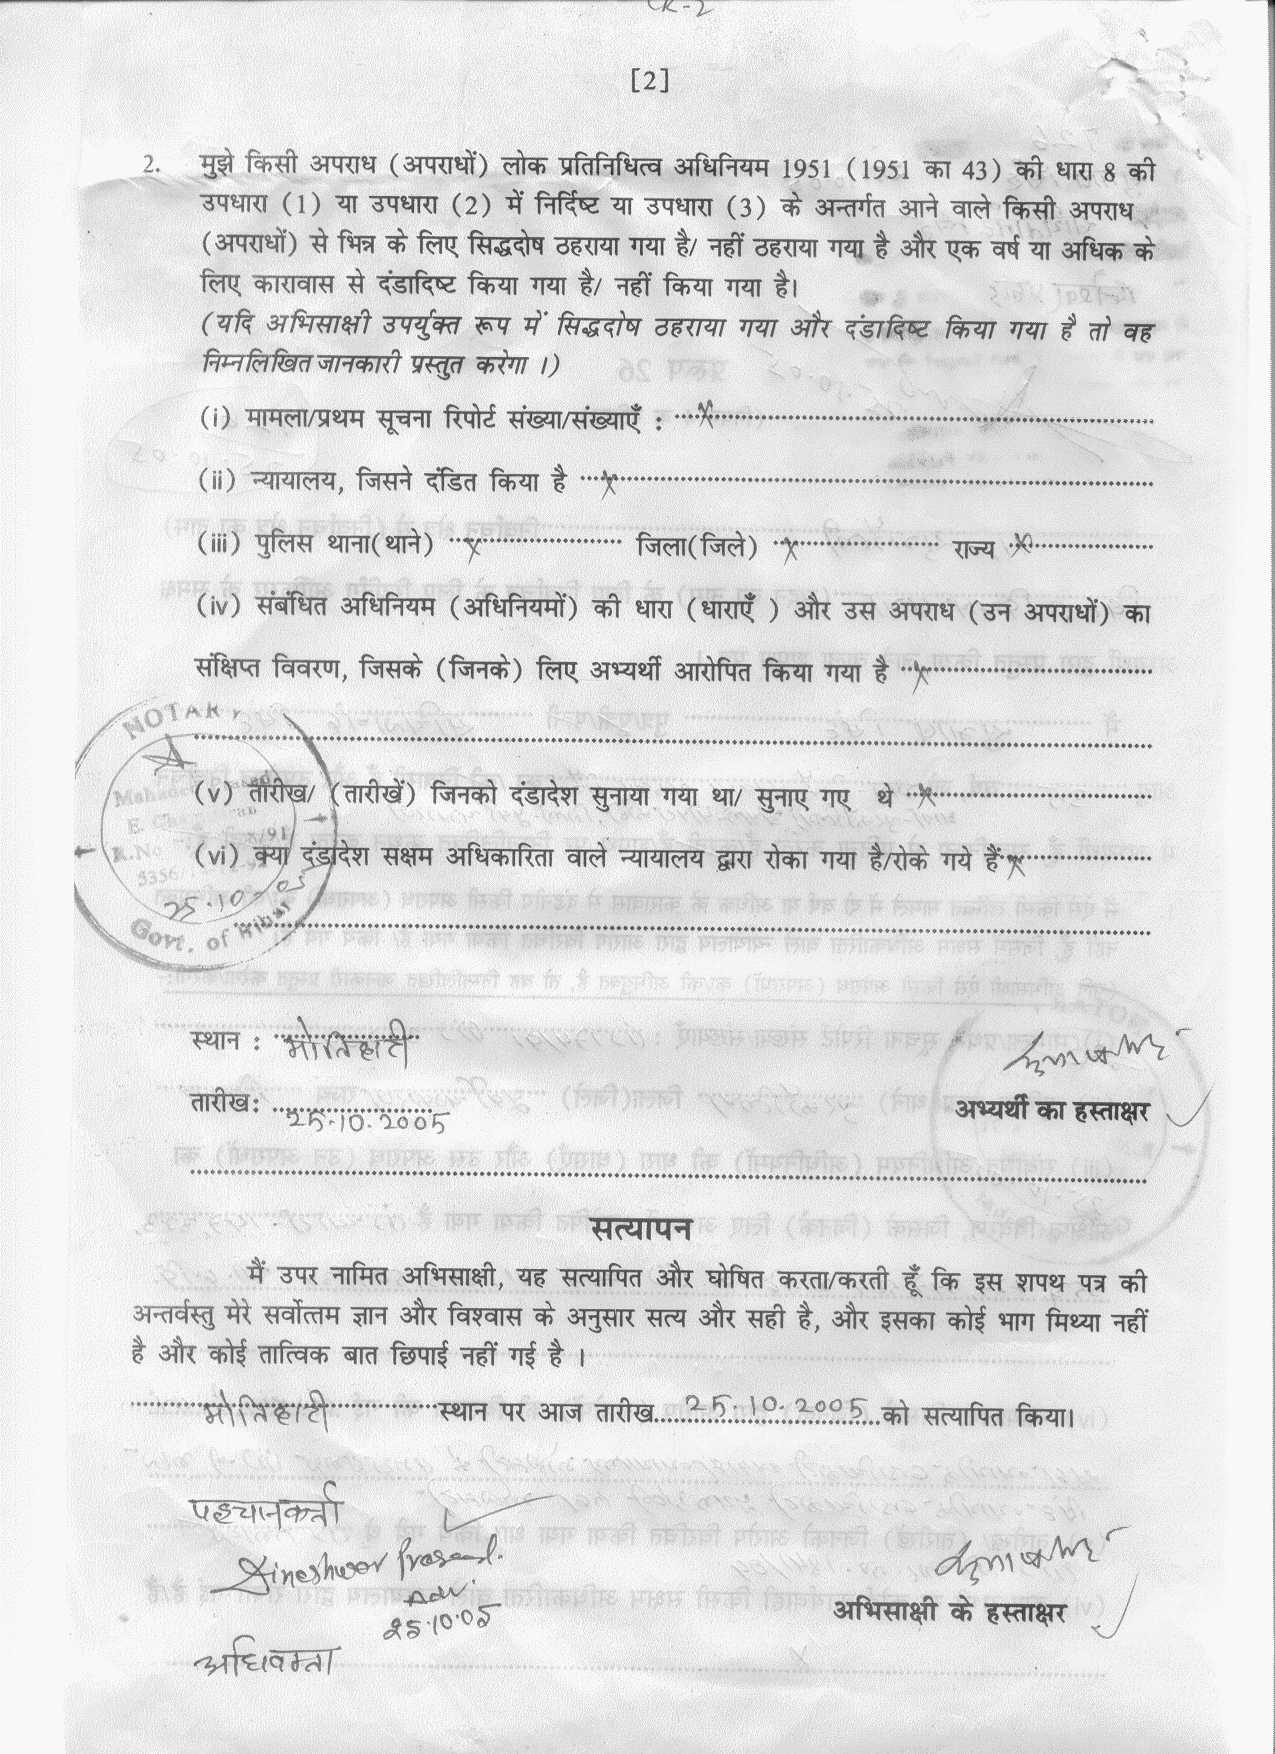 CR-2
[2]
2. मुझे किसी अपराध (अपराधों) लोक प्रतिनिधित्व अधिनियम 1951 (1951 का 43) की धारा 8 की
उपधारा (1) या उपधारा (2) में निर्दिष्ट या उपधारा (3) के अन्तर्गत आने वाले किसी अपराध
(अपराधों) से भिन्न के लिए सिद्धदोष ठहराया गया है/ नहीं ठहराया गया है और एक वर्ष या अधिक के
लिए कारावास से दंडादिष्ट किया गया है/ नहीं किया गया है।
(यदि अभिसाक्षी उपर्युक्त रूप में सिद्धदोष ठहराया गया और दंडादिष्ट किया गया है तो वह
निम्नलिखित जानकारी प्रस्तुत करेगा ।)
(i) मामला/प्रथम सूचना रिपोर्ट संख्या/संख्याएँ : x
(ii) न्यायालय, जिसने दंडित किया है x
(iii) पुलिस थाना(थाने) x जिला(जिले) x राज्य x
(iv) संबंधित अधिनियम (अधिनियमों) की धारा (धाराएँ ) और उस अपराध (उन अपराधों) का
संक्षिप्त विवरण, जिसके (जिनके) लिए अभ्यर्थी आरोपित किया गया है x
NOTARY
(v) तारीख/ (तारीखें) जिनको दंडादेश सुनाया गया था/ सुनाए गए थे x
(vi) क्या दंडादेश सक्षम अधिकारिता वाले न्यायालय द्वारा रोका गया है/रोके गये हैं x
25.10-05
Govt. of Bihar
स्थान : मोतिहारी
तारीख: 25.10.2005
अभ्यर्थी का हस्ताक्षर
सत्यापन
मैं उपर नामित अभिसाक्षी, यह सत्यापित और घोषित करता/करती हूँ कि इस शपथ पत्र की
अन्तर्वस्तु मेरे सर्वोत्तम ज्ञान और विश्वास के अनुसार सत्य और सही है, और इसका कोई भाग मिथ्या नहीं
है और कोई तात्विक बात छिपाई नहीं गई है ।
मोतिहारी स्थान पर आज तारीख 25.10.2005 को सत्यापित किया।
पहचानकर्त्ता
Dineshwar Prasad.
Adv.
25.10.05
अधिवक्ता
अभिसाक्षी के हस्ताक्षर